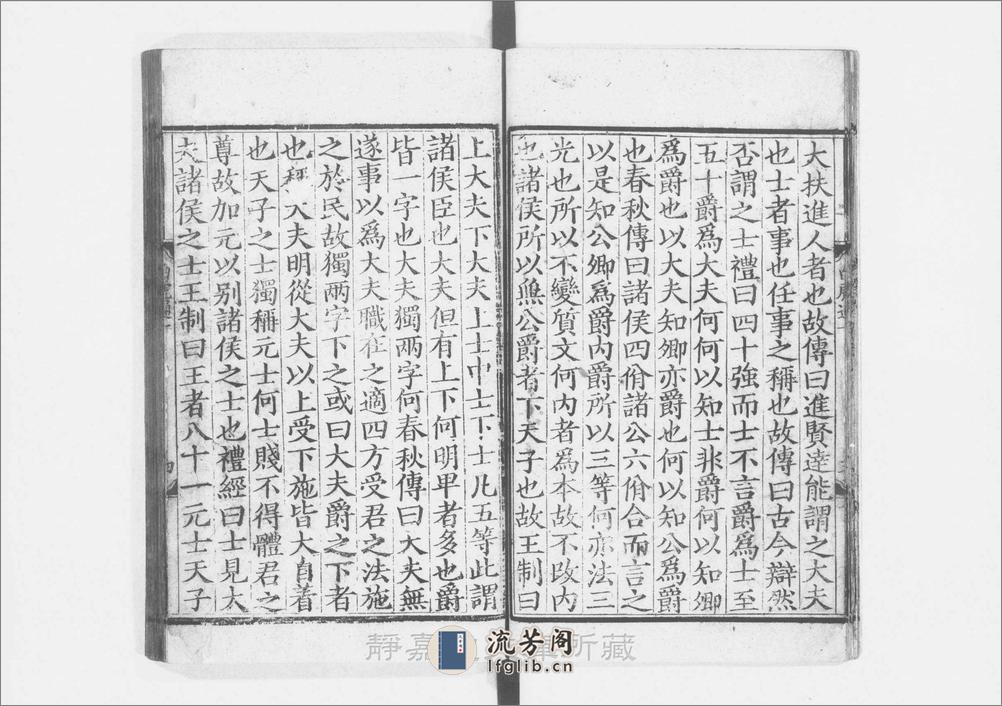 大扶進人者也故傳曰進賢達能謂之大夫
也士者事也任事之稱也故傳曰古今辯然
否謂之士禮曰四十強而士不言爵爲士至
五十爵爲大夫何何以知士非爵何以知卿
爲爵也以大夫知卿亦爵也何以知公爲爵
也春秋傳曰諸侯四佾諸公六佾合而言之
以是知公卿爲爵内爵所以三等何亦法三
光也所以不變質文何内者爲本故不改内
也諸侯所以無公爵者下天子也故王制曰
上大夫下大夫上士中士下士凡五等此謂
諸侯臣也大夫但有上下何明卑者多也爵
皆一字也大夫獨兩字何春秋傳曰大夫無
遂事以爲大夫職在之適四方受君之法施
之於民故獨兩字下之或曰大夫爵之下者
也稱大夫明從大夫以上受下施皆大自着
也天子之士獨稱元士何士賤不得體君之
尊故加元以别諸侯之士也禮經曰士見大
夫諸侯之士王制曰王者八十一元士天子
靜嘉 所藏
流芳阁
lfglib.cn